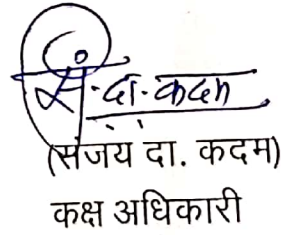 सं.दा.कदम
(संजय दा. कदम)
कक्ष अधिकारी